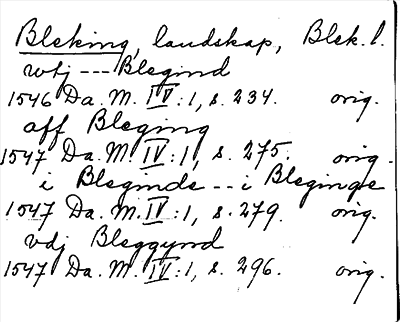 Bleking, landskap, Blek. l.
wtj --- Blegind
1546 Da. M. IV:1, s. 234. orig.
aff Bleging
1547 Da. M. IV:1, s. 275. orig.
i Bleginde -- i Blegingie
1547 Da. M. IV:1, s. 279. orig.
vdj Bleggynd
1547 Da. M. IV:1, s. 296. orig.